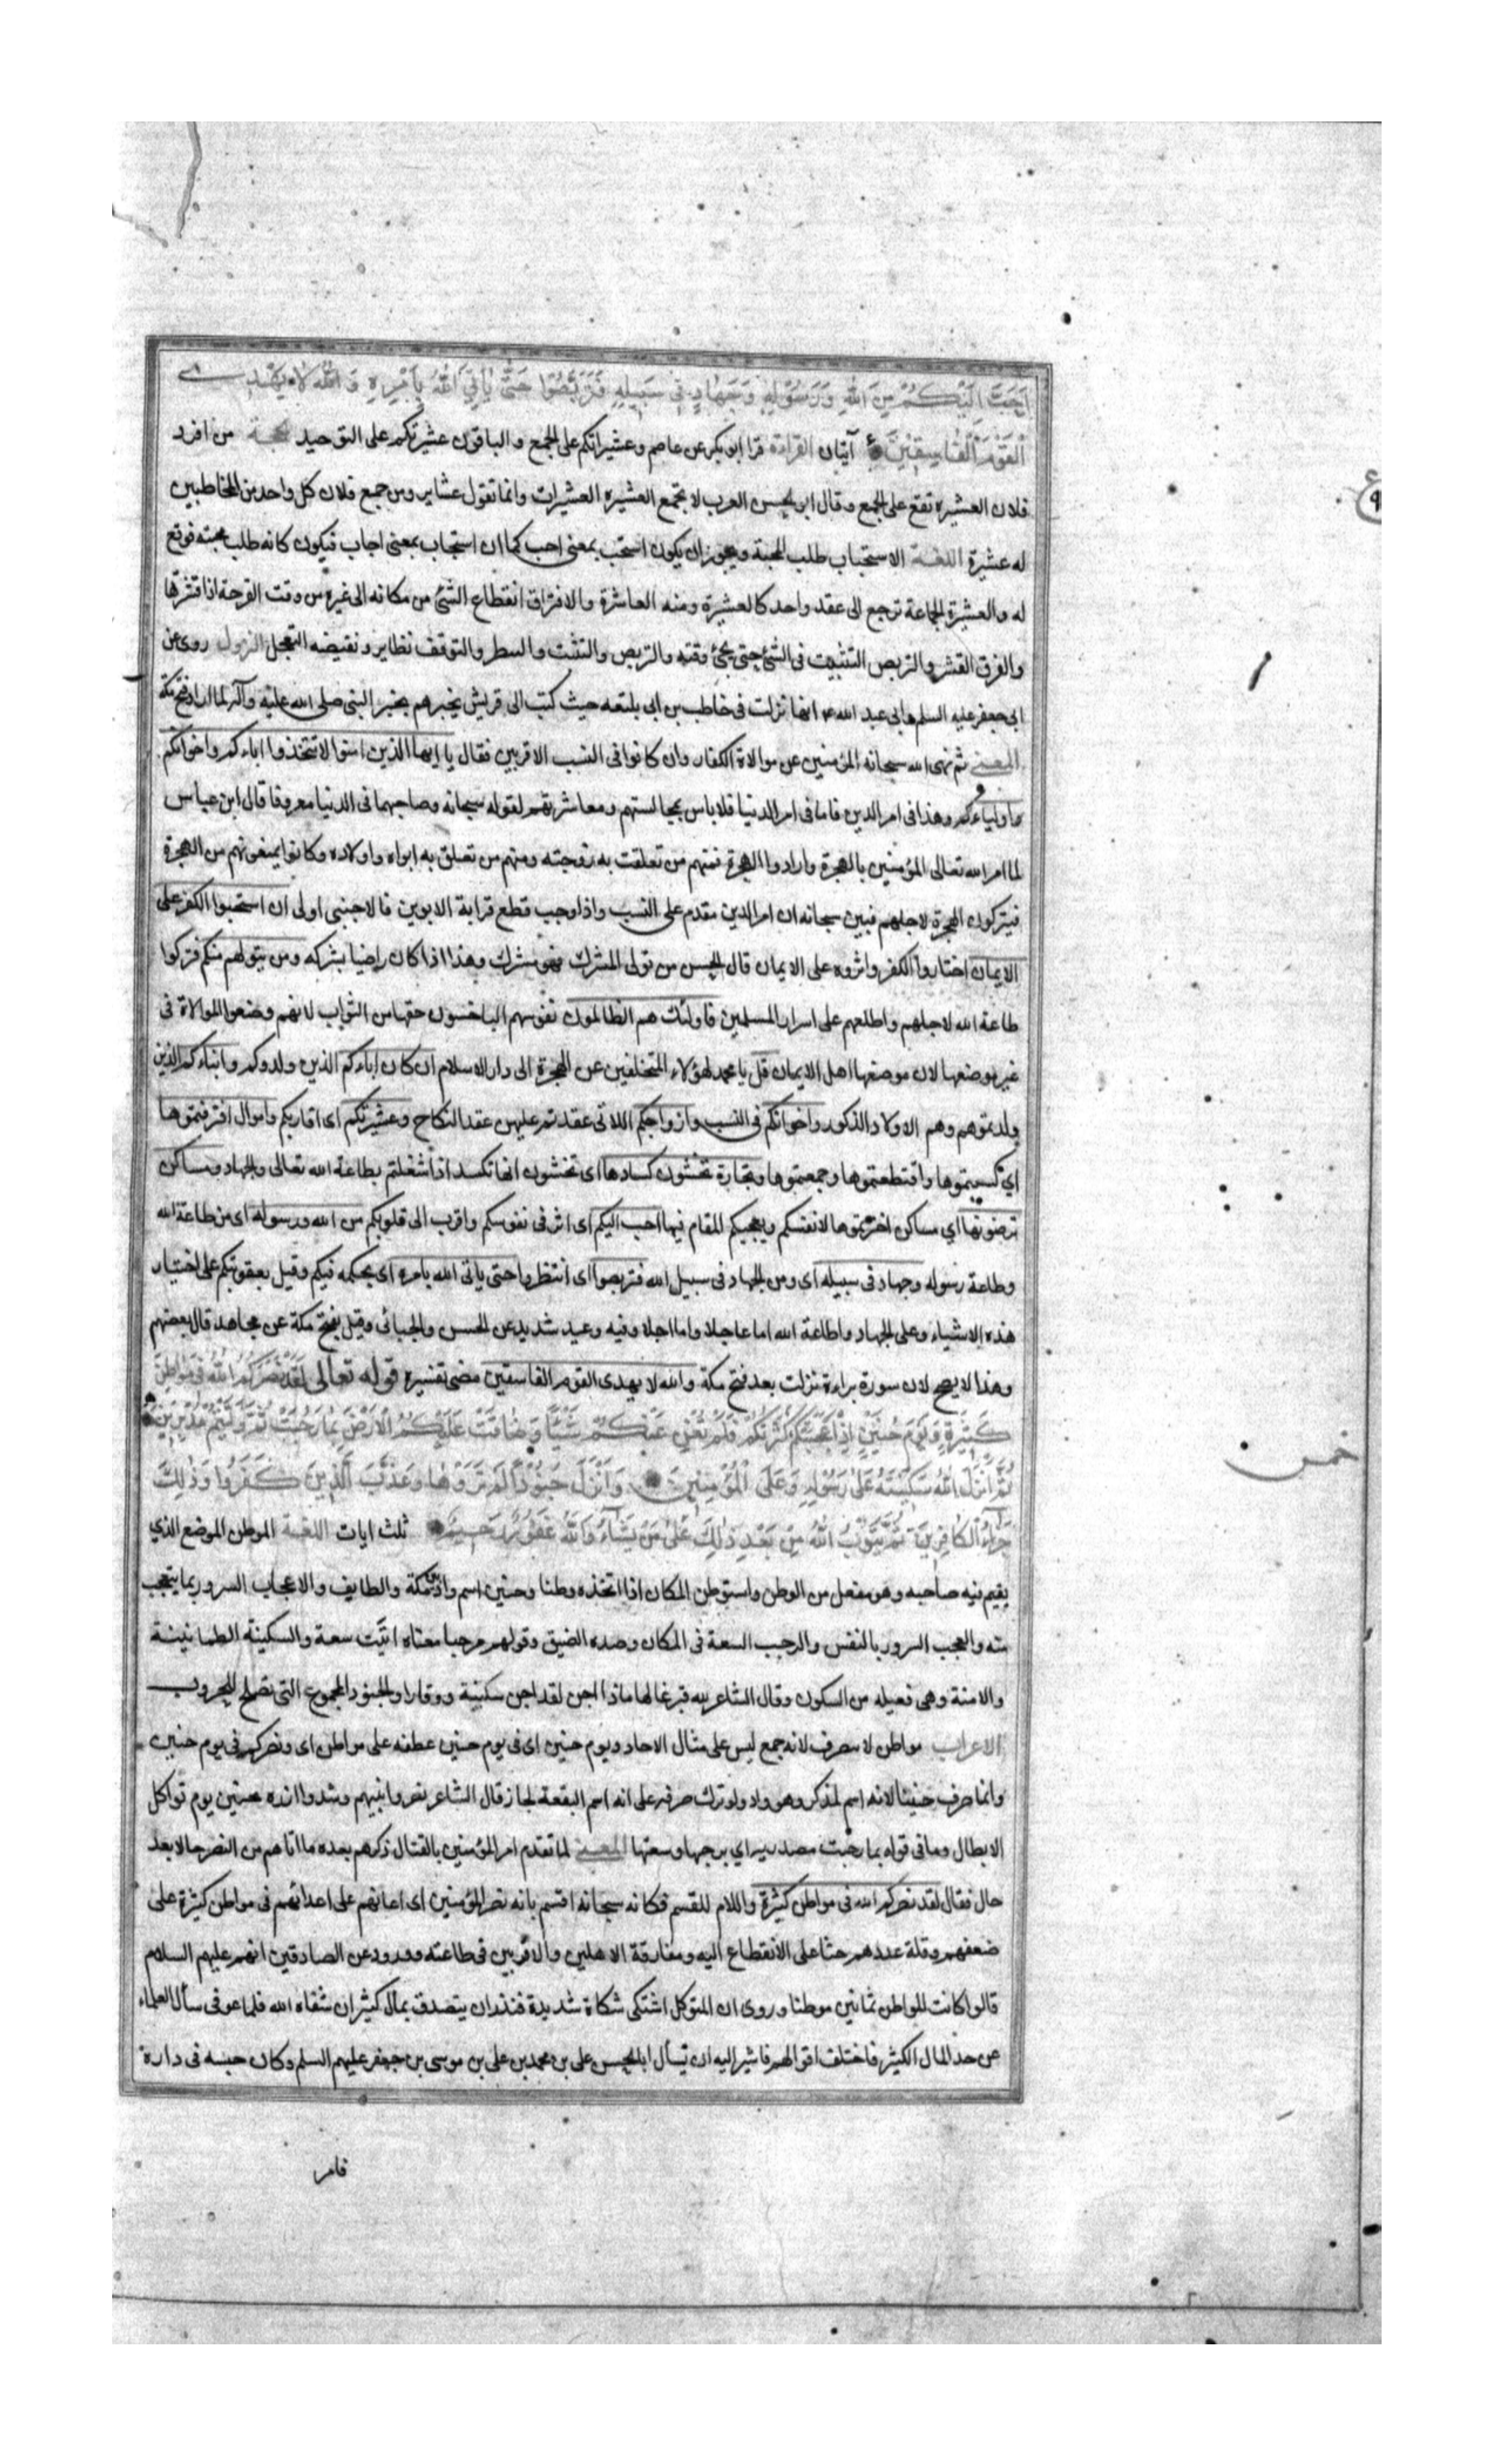 اَحَبَّ اِلَيْكُمْ مِنَ اللهِ وَرَسُوْلِهِ وَجِهَادٍ فِى سَبِيْلِهِ فَتَرَبَّصُوْا حَتّٰى يَأْتِيَ اللهُ بِأَمْرِهِ وَاللهُ لَا يَهْدِى
الْقَوْمَ الْفَاسِقِيْنَ آيتان القراءة قرا ابو بكر عن عاصم وعشيراتكم على الجمع والباقون عشيرتكم على التوحيد الحجة من افرد
فلان العشيرة تقع على الجمع وقال ابو الحسن العرب لا تجمع العشيرة العشيرات وانما تقول عشاير ومن جمع فلان كل واحد من المخاطبين
له عشيرة اللغة الاستحباب طلب المحبة ويجوز ان يكون استحب بمعنى احب كما ان استجاب بمعنى اجاب فيكون كانه طلب محبته فوقع
له والعشيرة الجماعة ترجع الى عقد واحد كالعشيرة ومنه العاشرة والافتراق انقطاع الشئ من مكانه الى غيره من وقت القرحة اذا قشرتها
والفرق القشر والتربص التثبيت فى الشئ حتى يجئ وقته والتربص والتثبت والسطر والتوقف نظاير ونقيضه التعجل النزول روى عن
ابى جعفر عليه السلم وابى عبد الله ع انها نزلت فى خاطب بن ابى بلتعه حيث كتب الى قريش يخبرهم بخبر النبى صلى الله عليه وآله لما اراد فتح مكة
المعنى ثم نهى الله سبحانه المؤمنين عن موالاة الكفار وان كانوا فى النسب الاقربين فقال يا ايها الذين امنوا لا تتخذوا اباءكم واخوانكم
اولياءكم وهذا فى امر الدين فاما فى امر الدنيا فلا باس بمجالستهم ومعاشرتهم لقوله سبحانه وصاحبهما فى الدنيا معروفا قال ابن عباس
لما امر الله تعالى المؤمنين بالهجرة وارادوا الهجرة فمنهم من تعلقت به زوجته ومنهم من تعلق به ابواه واولاده وكانوا يمنعونهم من الهجرة
فيتركون الهجرة لاجلهم فبين سبحانه ان امر الدين مقدم على النسب واذا وجب قطع قرابة الابوين فالاجنبى اولى ان استحبوا الكفر على
الايمان اختاروا الكفر واثروه على الايمان قال الحسن من تولى المشرك فهو مشرك وهذا اذا كان راضيا بشركه ومن يتولهم منكم فتركوا
طاعة الله لاجلهم واطلعهم على اسرار المسلمين فاولئك هم الظالمون نفوسهم الباخسون حقها من الثواب لانهم وضعوا الموالاة فى
غير موضعها لان موضعها اهل الايمان قل يا محمد لهؤلاء المتخلفين عن الهجرة الى دار الاسلام ان كان اباءكم الذين ولدوكم وابناءكم الذين
ولدتموهم وهم الاولاد الذكور واخوانكم فى النسب وازواجكم اللاتى عقدتم عليهن عقد النكاح وعشيرتكم اى اقاربكم واموال اقترفتموها
اي كسبتموها واقتطعتموها وجمعتموها وتجارة تخشون كسادها اى تخشون انها تكسد اذا شغلتم بطاعة الله تعالى والجهاد ومساكن
ترضونها اي مساكن اخترتموها لانفسكم ويعجبكم المقام فيها احب اليكم اى اثر فى نفوسكم واقرب الى قلوبكم من الله ورسوله اى من طاعة الله
وطاعة رسوله وجهاد فى سبيله اى ومن الجهاد فى سبيل الله فتربصوا اى انتظروا حتى ياتى الله بامره اى بحكمه فيكم وقيل بعقوبتكم على اختيار
هذه الاشياء وعلى الجهاد واطاعة الله اما عاجلا واما اجلا وفيه وعيد شديد عن الحسن والجبائى وقيل بفتح مكة عن مجاهد قال بعضهم
وهذا لا يصح لان سورة براءة نزلت بعد فتح مكة والله لا يهدى القوم الفاسقين مضى تفسيره قوله تعالى لَقَدْ نَصَرَكُمُ اللهُ فِى مَوَاطِنَ
كَثِيْرَةٍ وَيَوْمَ حُنَيْنٍ اِذْ اَعْجَبَتْكُمْ كَثْرَتُكُمْ فَلَمْ تُغْنِ عَنْكُمْ شَيْئًا وَضَاقَتْ عَلَيْكُمُ الْاَرْضُ بِمَا رَحُبَتْ ثُمَّ وَلَّيْتُمْ مُدْبِرِيْنَ
ثُمَّ اَنْزَلَ اللهُ سَكِيْنَتَهُ عَلَىٰ رَسُوْلِهِ وَعَلَى الْمُؤْمِنِيْنَ وَاَنْزَلَ جُنُوْدًا لَمْ تَرَوْهَا وَعَذَّبَ الَّذِيْنَ كَفَرُوا وَذٰلِكَ
جَزَاءُ الْكَافِرِيْنَ ثُمَّ يَتُوْبُ اللهُ مِنْ بَعْدِ ذٰلِكَ عَلَىٰ مَنْ يَشَاءُ وَاللهُ غَفُوْرٌ رَحِيْمٌ ثلث ايات اللغة الموطن الموضع الذي
يقيم فيه صاحبه وهو مفعل من الوطن واستوطن المكان اذا اتخذه وطنا وحنين اسم واد بين مكة والطايف والاعجاب السرور بما يتعجب
منه والعجب السرور بالنفس والرحب السعة فى المكان وضده الضيق وقولهم مرحبا معناه اتيت سعة والسكينة الطمانينة
والامنة وهى فعيله من السكون وقال الشاعر لله قبر غالها ماذا اجن لقد اجن سكينة ووقارا والجنود الجموع التى تصلح للحروب
الاعراب مواطن لا ينصرف لانه جمع ليس على مثال الاحاد ويوم حنين اى فى يوم حنين عطفه على مواطن اى ونصركم فى يوم حنين
وانما صرف حنينا لانه اسم لمذكر وهو واد ولو ترك صرفه على انه اسم البقعة لجاز قال الشاعر نصروا نبيهم وشدوا ازره بحنين يوم تواكل
الابطال وما فى قوله بما رحبت مصدريه اي برحبها وسعتها المعنى لما تقدم امر المؤمنين بالقتال ذكرهم بعده ما اتاهم من النصر حالا بعد
حال فقال لقد نصركم الله فى مواطن كثيرة واللام للقسم فكانه سبحانه اقسم بانه نصر المؤمنين اى اعانهم على اعدائهم فى مواطن كثيرة على
ضعفهم وقلة عددهم حثا على الانقطاع اليه ومفارقة الاهلين والاقربين فى طاعته وورود عن الصادقين انهم عليهم السلام
قالوا كانت المواطن ثمانين موطنا وروى ان المتوكل اشتكى شكاة شديدة فنذر ان يتصدق بمال كثير ان شفاه الله فلما عوفى سأل العلماء
عن حد المال الكثير فاختلف اقوالهم فاشير اليه ان تيسأل ابا الحسن على بن محمد بن على بن موسى بن جعفر عليهم السلم وكان حبسه فى داره
فامر
خمس